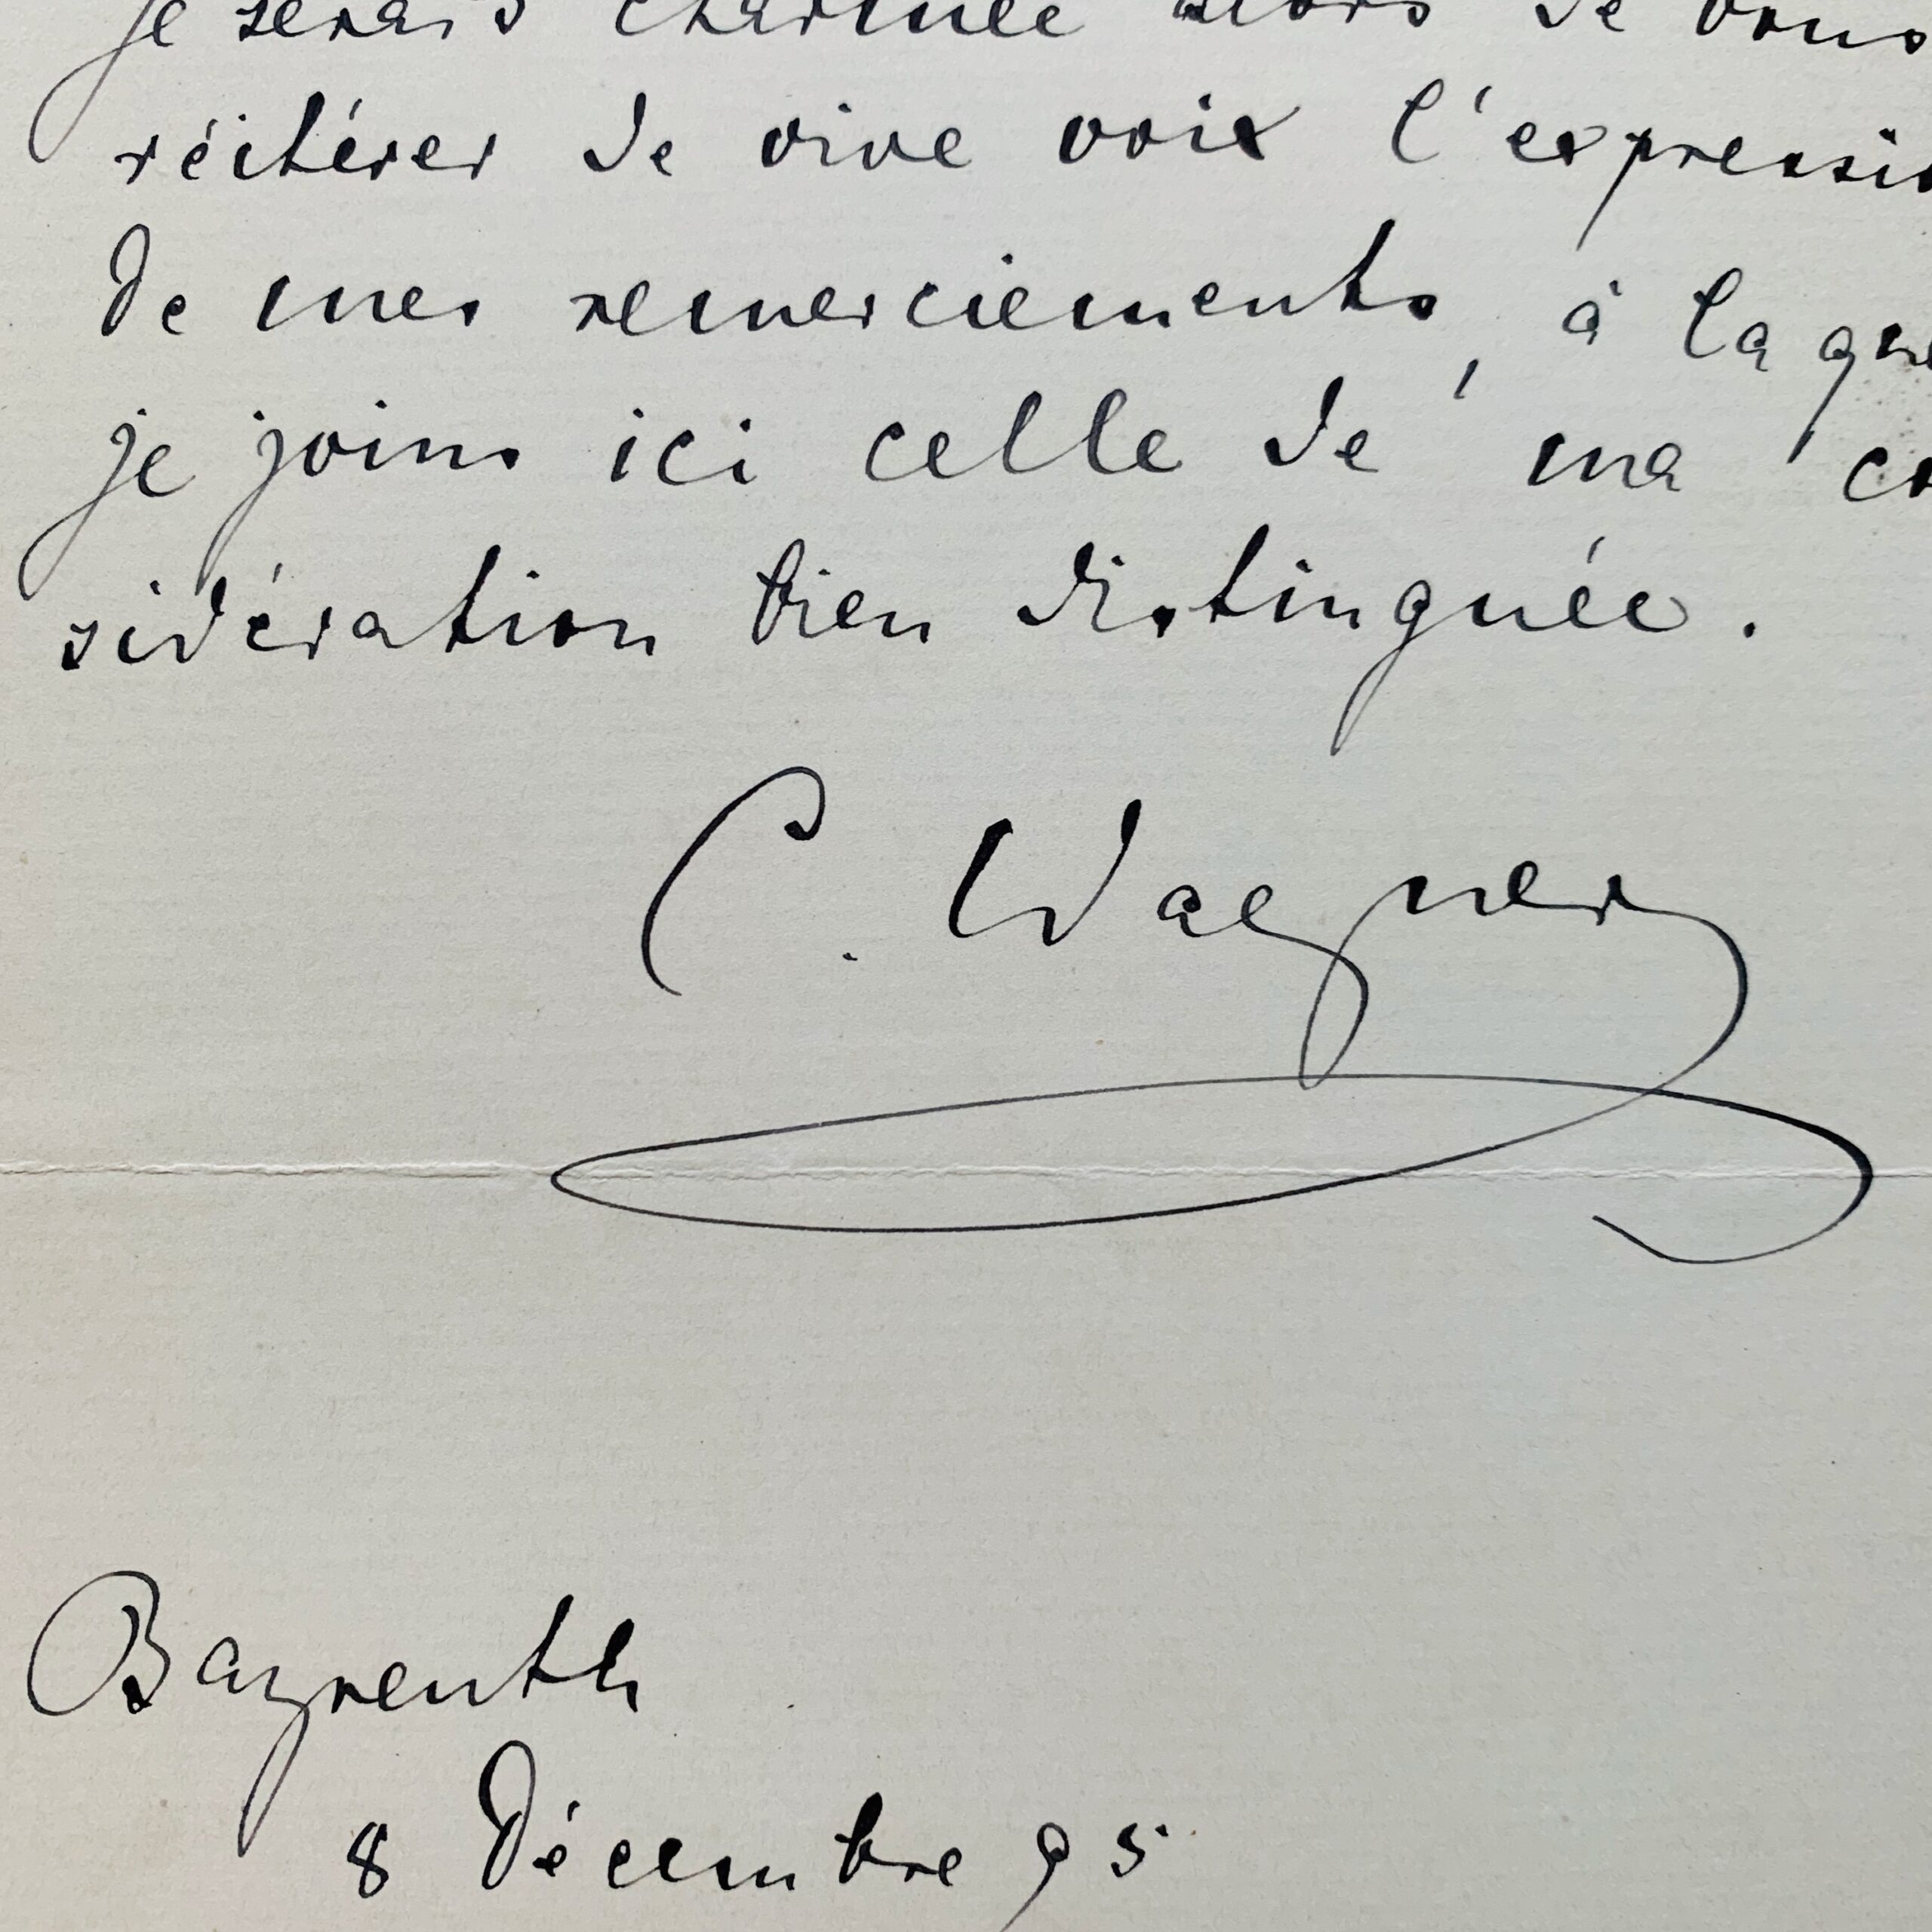 je serais charmée alors de vous
réitérer de vive voix l'expressio
de mes remerciements, à laque
je joins ici celle de ma co
sidération bien distinguée.
C. Wagner
Bayreuth
8 Décembre 95